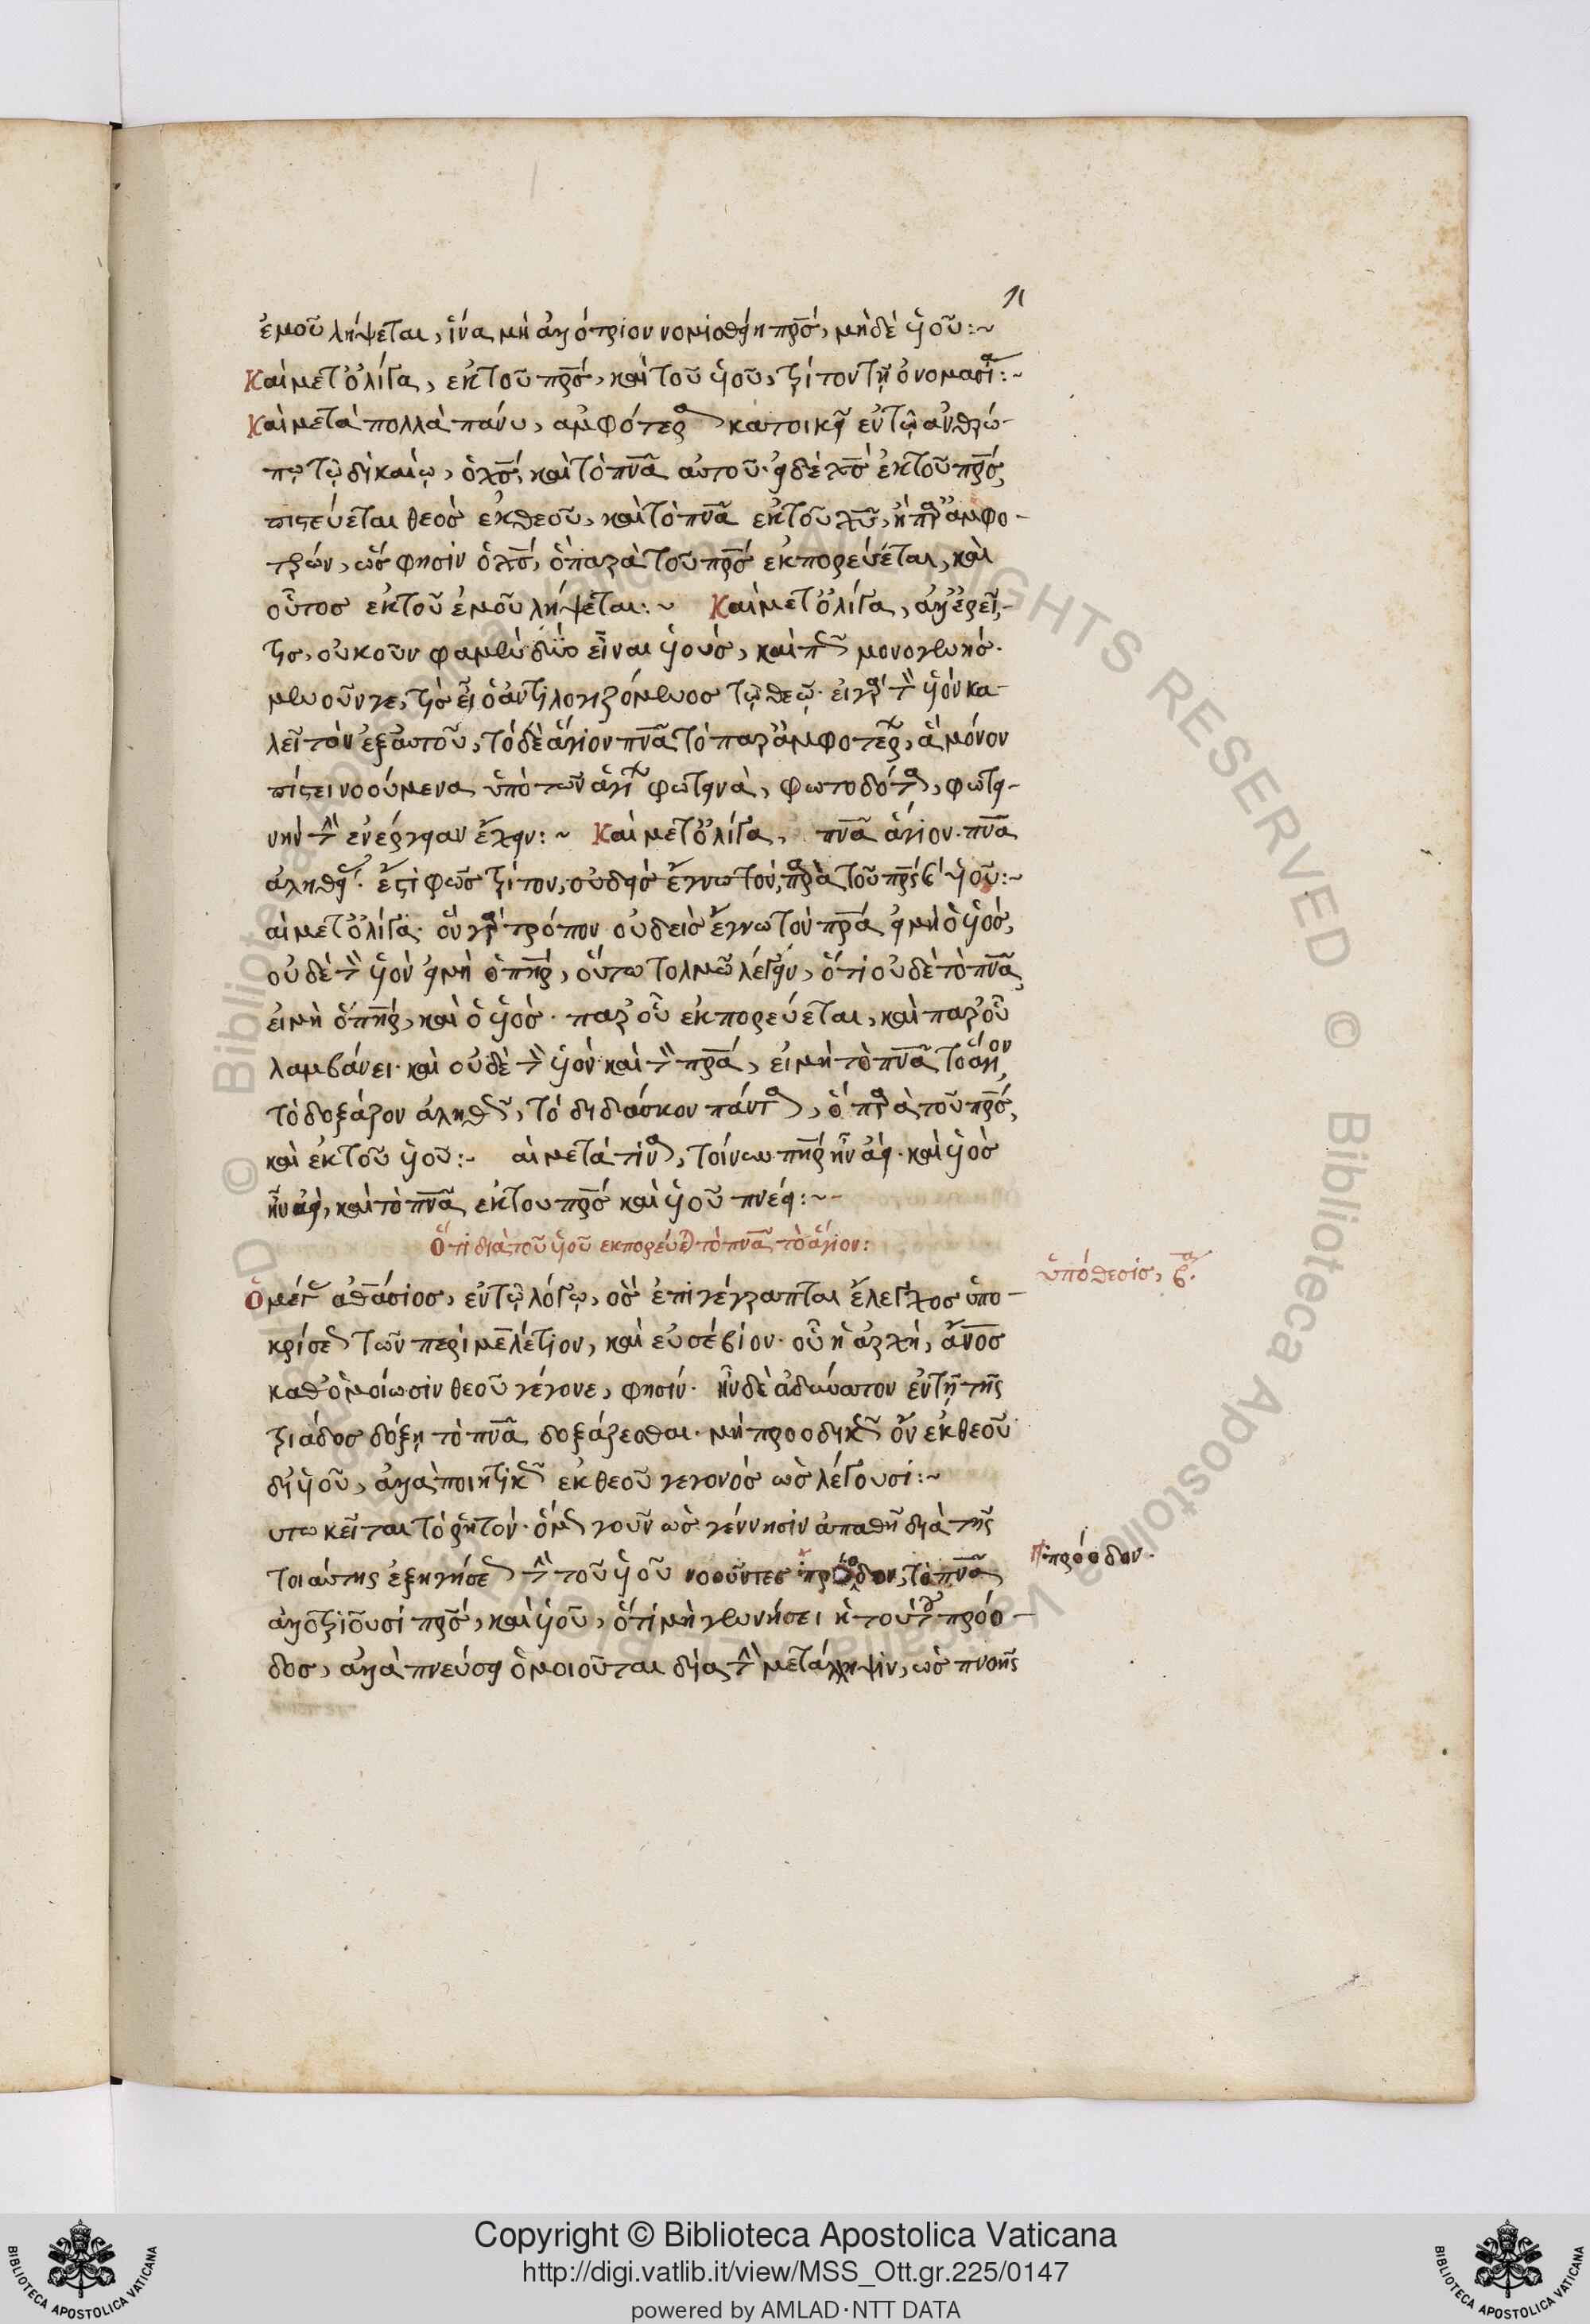 11
ἐμοῦ λήψεται, ἵνα μὴ ἀλλότριον νομισθείη πρς, μηδὲ ὑοῦ:~
Καὶ μετ' ὀλίγα, ἐκ τοῦ πρς, καὶ τοῦ ὑοῦ, τρίτον τῇ ὀνομασία:~
Καὶ μετὰ πολλὰ πάνυ, ἀμφότερα κατοικεῖ ἐν τῷ ἀνθρώ-
πῳ τῷ δικαίῳ, ὁ χς, καὶ τὸ πνα αὐτοῦ· εἰ δὲ χς ἐκ τοῦ πρς,
πιστεύεται θεὸς ἐκ θεοῦ, καὶ τὸ πνα ἐκ τοῦ χυ, ἢ παρ' ἀμφο-
τέρων, ὥς φησιν ὁ χς, ὃ παρὰ τοῦ πρς ἐκπορεύεται, καὶ
οὗτος ἐκ τοῦ ἐμοῦ λήψεται:~ Καὶ μετ' ὀλίγα, ἀλλ' ἐρεῖ,
τις, οὐκοῦν φαμὲν δύο εἶναι ὑούς, καὶ πῶς μονογενής·
μενοῦνγε, τίς εἶ ὁ ἀντιλογιζόμενος τῷ θεῷ· εἰ γὰρ τὸν ὑὸν κα-
λεῖ τὸν ἐξ αὐτοῦ, τὸ δὲ ἅγιον πνα τὸ παρ' ἀμφοτέρων, ἃ μόνον
πίστει νοούμενα, ὑπὸ τῶν ἁγίων φωτεινὰ, φωτοδότα, φωτει-
νὴν τὴν ἐνέργειαν ἔχειν:~ Καὶ μετ' ὀλίγα, πνα ἅγιον· πνα
ἀληθείας· ἔστι φῶς τρίτον, οὐδεὶς ἔγνω τὸν, παρὰ τοῦ πρς κ ὑοῦ:~
αὶ μετ' ὀλίγα· ὃν γὰρ τρόπον οὐδεὶς ἔγνω τὸν πρα εἰ μὴ ὁ ὑός,
οὐδὲ τὸν ὑὸν εἰ μὴ ὁ πηρ, οὕτω τολμῶ λέγειν, ὅτι οὐδὲ τὸ πνα
εἰ μὴ ὁ πηρ, καὶ ὁ ὑός· παρ' οὗ ἐκπορεύεται, καὶ παρ' οὗ
λαμβάνει· καὶ οὐδὲ τὸν ὑὸν καὶ τὸν πρα, εἰ μὴ τὸ πνα τὸ ἅγιον,
τὸ δοξάζον ἀληθῶς, τὸ διδάσκον πάντα, ὃ παρὰ τοῦ πρς,
καὶ ἐκ τοῦ ὑοῦ:~ αὶ μετά τινα, τοίνυν πηρ ἦν ἀεί· καὶ ὑὸς
ἦν ἀεί, καὶ τὸ πνα ἐκ του πρς καὶ ὑοῦ πνέει:~-
Ὅτι διὰ τοῦ ὑοῦ ἐκπορεύεται τὸ πνα τὸ ἅγιον:
ὑπόθεσις, βα.
Ὁ μέγας ἀθανάσιος, ἐν τῷ λόγῳ, ὃς ἐπιγέγραπται ἔλεγχος ὑπο-
κρίσεως τῶν περὶ μελέτιον, καὶ εὐσέβιον· οὗ ἡ ἀρχή, ἄνος
καθ' ὁμοίωσιν θεοῦ γέγονε, φησίν· ἦν δὲ ἀδύνατον ἐν τῇ τῆς
τριάδος δόξῃ τὸ πνα δοξάζεσθαι· μὴ προοδικῶς ὂν ἐκ θεοῦ
δι' ὑοῦ, ἀλλὰ ποιητικῶς ἐκ θεοῦ γεγονός ὡς λέγουσι:~
υτω κεῖται τὸ ῥητόν· ὅμως γοῦν ὡς γέννησιν ἀπαθῆ διὰ τῆς
τοιαύτης ἐξηγήσεως τὴν τοῦ ὑοῦ νοοῦντες πρόοδον, τὸ πνα
πρόοδον.
ἀλλοτριοῦσι πρς, καὶ ὑοῦ, ὅτι μὴ γεννήσει ἡ τούτου πρόο-
δος, ἀλλὰ πνεύσει ὁμοιοῦται διὰ τὴν μετάληψιν, ὡς πνοῆς
Copyright © Biblioteca Apostolica Vaticana
http://digi.vatlib.it/view/MSS_Ott.gr.225/0147
powered by AMLAD·NTT DATA
BIBLIOTECA APOSTOLICA VATICANA
BIBLIOTECA APOSTOLICA VATICANA